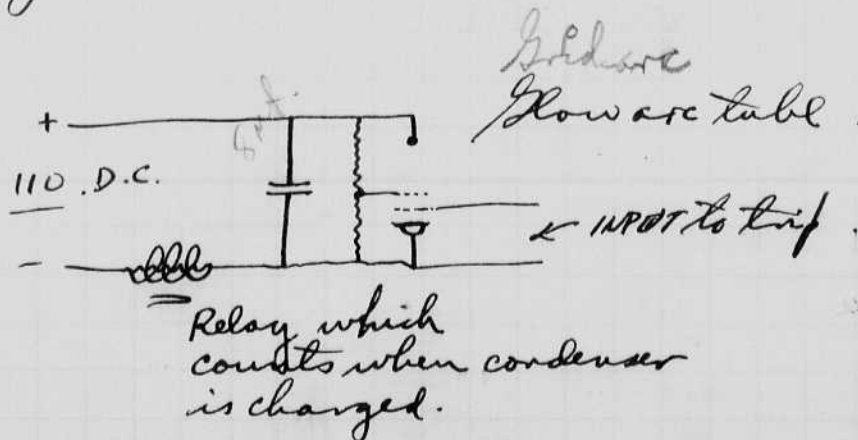 Glow arc tube.
+
110. D.C.
← INPUT to trip.
-
Relay which
counts when condenser
is charged.